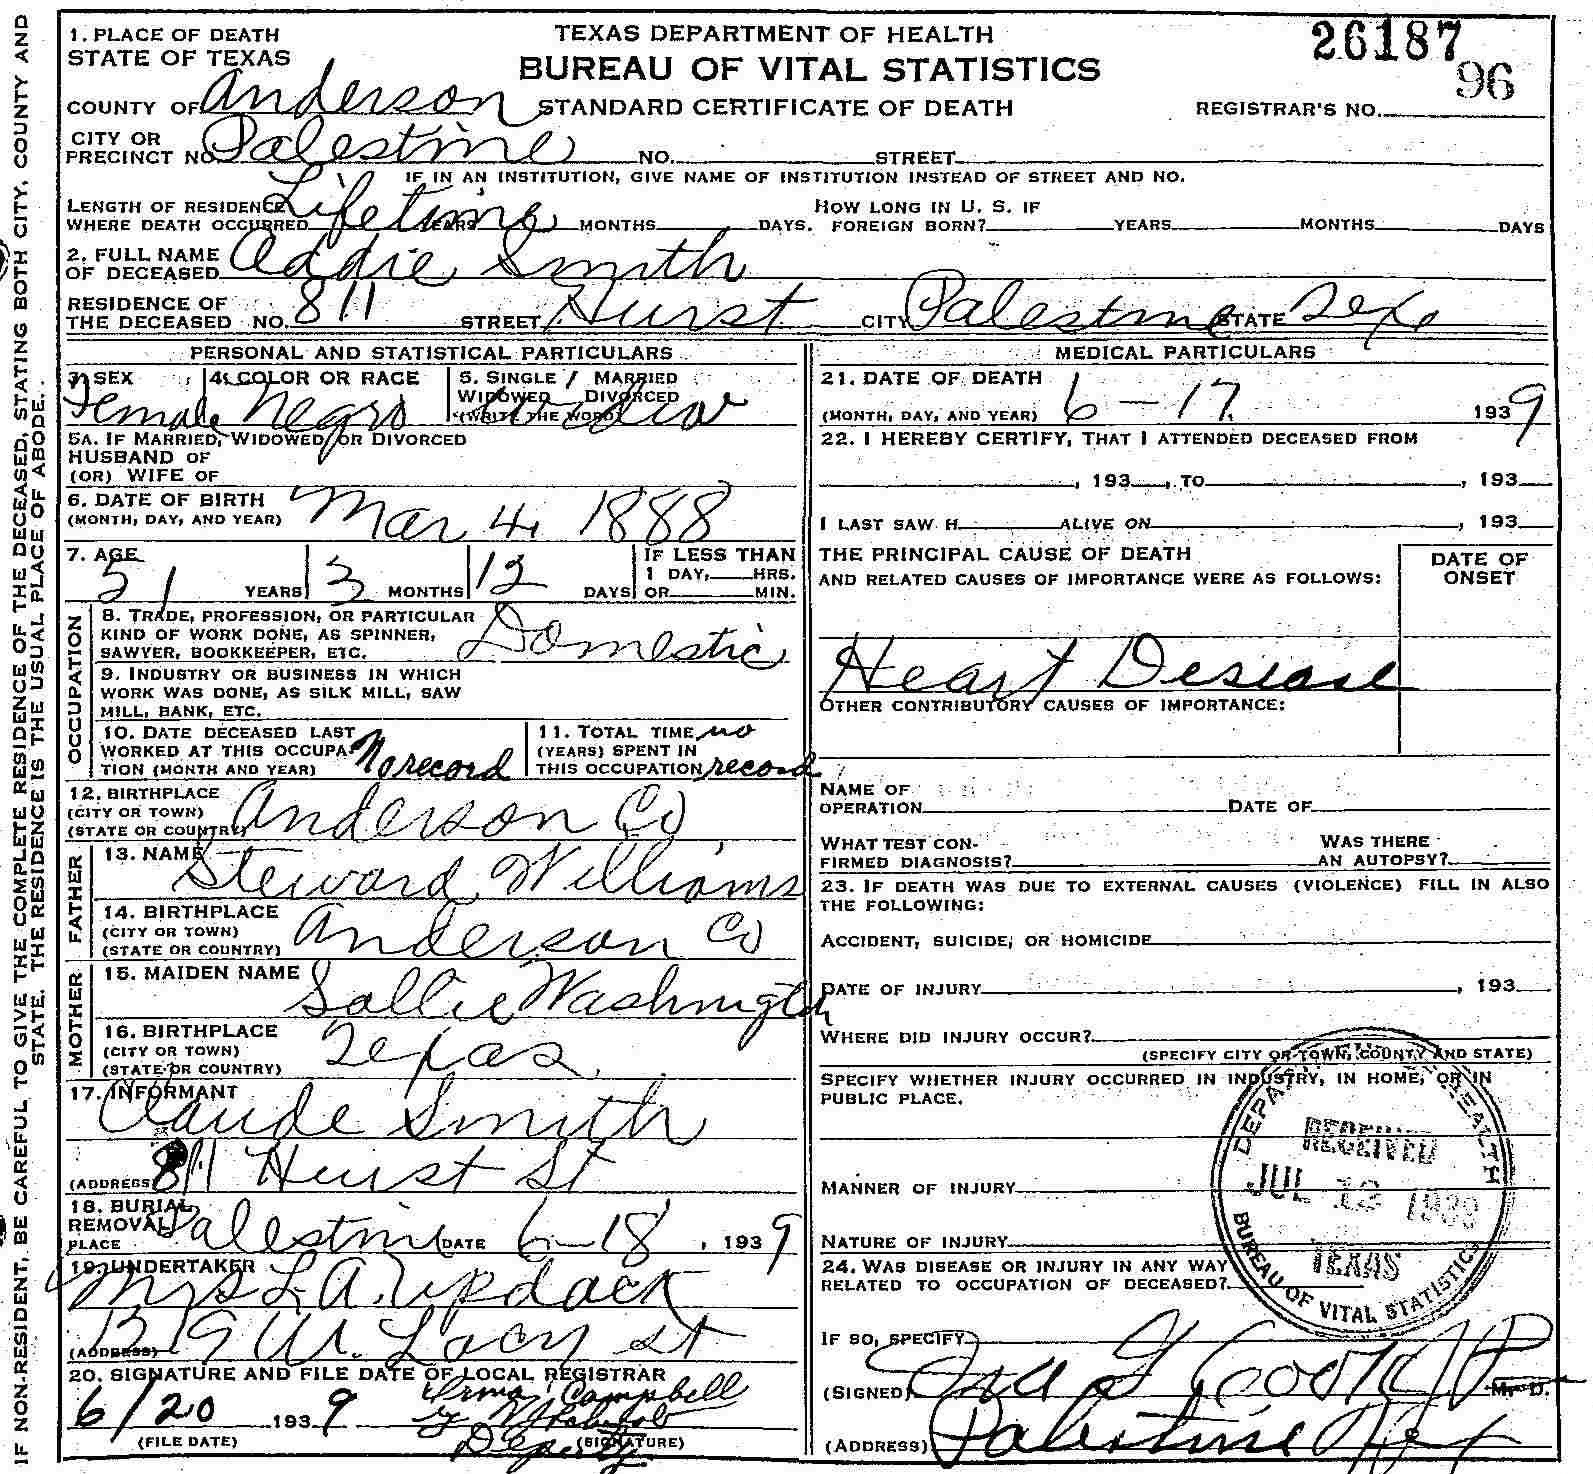 IF NON-RESIDENT, BE CAREFUL TO GIVE THE COMPLETE RESIDENCE OF THE DECEASED, STATING BOTH CITY, COUNTY AND
STATE. THE RESIDENCE IS THE USUAL PLACE OF ABODE.
1. PLACE OF DEATH
STATE OF TEXAS
TEXAS DEPARTMENT OF HEALTH
BUREAU OF VITAL STATISTICS
STANDARD CERTIFICATE OF DEATH
26187
REGISTRAR'S NO. 96
COUNTY OF Anderson
CITY OR
PRECINCT NO. Palestine NO. STREET
IF IN AN INSTITUTION, GIVE NAME OF INSTITUTION INSTEAD OF STREET AND NO.
LENGTH OF RESIDENCE
WHERE DEATH OCCURRED Lifetime YEARS MONTHS DAYS.
HOW LONG IN U. S. IF
FOREIGN BORN? YEARS MONTHS DAYS
2. FULL NAME
OF DECEASED Addie Smith
RESIDENCE OF
THE DECEASED NO. 811 STREET Hurst CITY Palestine STATE Tex
PERSONAL AND STATISTICAL PARTICULARS
3. SEX
Female
4. COLOR OR RACE
Negro
5. SINGLE / MARRIED
WIDOWED DIVORCED
(WRITE THE WORD)
5A. IF MARRIED, WIDOWED, OR DIVORCED
HUSBAND OF
(OR) WIFE OF
6. DATE OF BIRTH
(MONTH, DAY, AND YEAR) Mar 4, 1888
7. AGE
51 YEARS 3 MONTHS 13 DAYS
IF LESS THAN
1 DAY, HRS.
OR MIN.
OCCUPATION
8. TRADE, PROFESSION, OR PARTICULAR
KIND OF WORK DONE, AS SPINNER,
SAWYER, BOOKKEEPER, ETC. Domestic
9. INDUSTRY OR BUSINESS IN WHICH
WORK WAS DONE, AS SILK MILL, SAW
MILL, BANK, ETC.
10. DATE DECEASED LAST
WORKED AT THIS OCCUPA-
TION (MONTH AND YEAR) No record
11. TOTAL TIME no
(YEARS) SPENT IN
THIS OCCUPATION record
12. BIRTHPLACE
(CITY OR TOWN)
(STATE OR COUNTRY) Anderson Co
FATHER
13. NAME
Steward Williams
14. BIRTHPLACE
(CITY OR TOWN)
(STATE OR COUNTRY) Anderson Co
MOTHER
15. MAIDEN NAME
Sallie Washington
16. BIRTHPLACE
(CITY OR TOWN)
(STATE OR COUNTRY) Texas
17. INFORMANT
Claude Smith
(ADDRESS) 811 Hurst St
18. BURIAL
REMOVAL
PLACE Palestine DATE 6-18, 1939
19. UNDERTAKER
Mrs L. A. Updack
(ADDRESS) 1319 W. Lacy St
20. SIGNATURE AND FILE DATE OF LOCAL REGISTRAR
6/20 1939 Irma Campbell
Deputy
(FILE DATE) (SIGNATURE)
MEDICAL PARTICULARS
21. DATE OF DEATH
(MONTH, DAY, AND YEAR) 6-17 1939
22. I HEREBY CERTIFY, THAT I ATTENDED DECEASED FROM
, 193 , TO , 193
I LAST SAW H ALIVE ON , 193
THE PRINCIPAL CAUSE OF DEATH
AND RELATED CAUSES OF IMPORTANCE WERE AS FOLLOWS:
DATE OF
ONSET
Heart Desease
OTHER CONTRIBUTORY CAUSES OF IMPORTANCE:
NAME OF
OPERATION DATE OF
WHAT TEST CON-
FIRMED DIAGNOSIS?
WAS THERE
AN AUTOPSY?
23. IF DEATH WAS DUE TO EXTERNAL CAUSES (VIOLENCE) FILL IN ALSO
THE FOLLOWING:
ACCIDENT, SUICIDE, OR HOMICIDE
DATE OF INJURY , 193
WHERE DID INJURY OCCUR?
(SPECIFY CITY OR TOWN, COUNTY AND STATE)
SPECIFY WHETHER INJURY OCCURRED IN INDUSTRY, IN HOME, OR IN
PUBLIC PLACE.
MANNER OF INJURY
NATURE OF INJURY
24. WAS DISEASE OR INJURY IN ANY WAY
RELATED TO OCCUPATION OF DECEASED?
IF SO, SPECIFY
(SIGNED) Ina G Cook JP M. D.
(ADDRESS) Palestine Tex
RECEIVED
JUL 12 1939
TEXAS
BUREAU OF VITAL STATISTICS